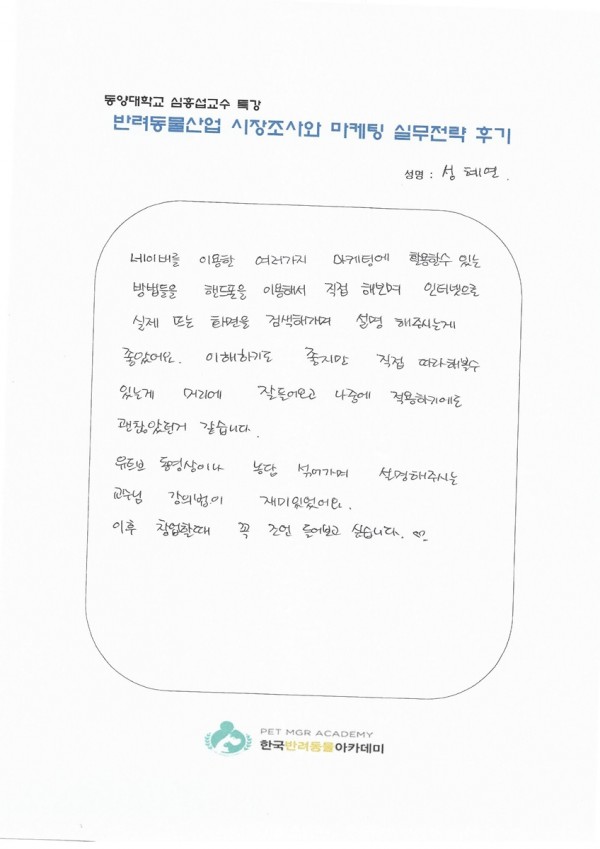 동양대학교 심홍섭교수 특강
반려동물산업 시장조사와 마케팅 실무전략 후기
성명 : 성혜연.
네이버를 이용한 여러가지 마케팅에 활용할수 있는
방법들을 핸드폰을 이용해서 직접 해보며 인터넷으로
실제 뜨는 화면을 검색해가며 설명 해주시는게
좋았어요. 이해하기도 좋지만 직접 따라해볼수
있는게 머리에 잘들어오고 나중에 적용하기에도
괜찮았던거 같습니다.
유트브 동영상이나 농담 섞어가며 설명해주시는
교수님 강의법이 재미있었어요.
이후 창업할때 꼭 조언 들어보고 싶습니다.
PET MGR ACADEMY
한국반려동물아카데미